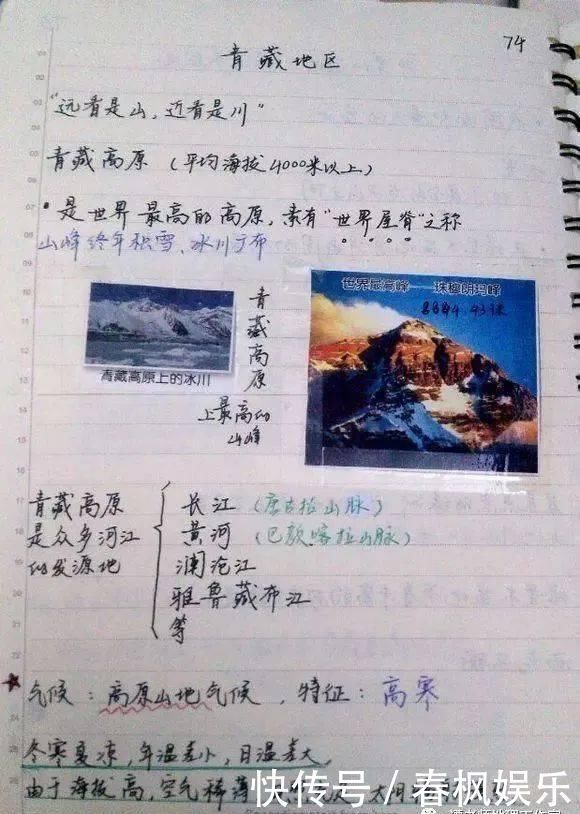 74
青藏地区
"远看是山,近看是川"
青藏高原(平均海拔4000米以上)
·是世界最高的高原,素有"世界屋脊"之称
山峰终年积雪、冰川广布
青藏高原上的冰川
青藏高原
上最高的
山峰
世界最高峰——珠穆朗玛峰
8844.43米
青藏高原
是众多河江
的发源地
长江(唐古拉山脉)
黄河(巴颜喀拉山脉)
澜沧江
雅鲁藏布江
等
气候:高原山地气候,特征:高寒
冬寒夏凉,年温差小,日温差大,
由于海拔高,空气稀薄
快传号/春枫娱乐